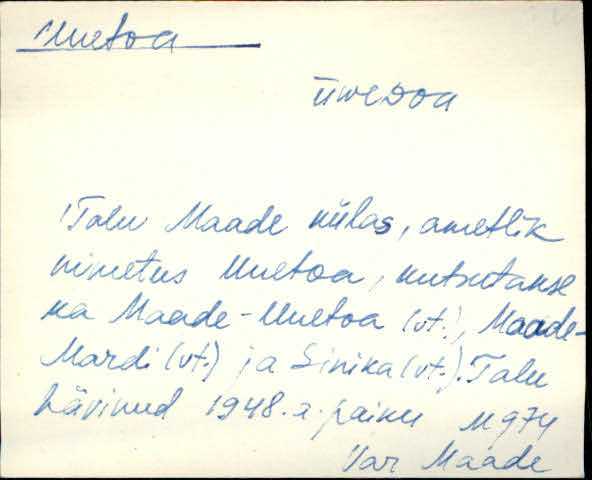 Uuetoa
üweDoa
Talu Maade külas, ametlik
nimetus Uuetoa, kutsutakse
ka Maade-Uuetoa (vt.), Maade-
Mardi (vt.) ja Sinika (vt.). Talu
hävinud 1948. a. paiku M 974
Var Maade